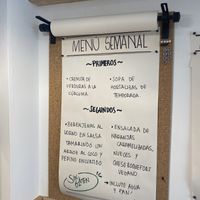 MENÚ SEMANAL
~PRIMEROS~
• CREMITA DE
VERDURAS A LA
CÚRCUMA
• SOPA DE
HORTALIZAS DE
TEMPORADA
~SEGUNDOS~
• BERENJENAS AL
HORNO EN SALSA
TAMARINDO CON
ARROZ AL COCO Y
PEPINO ENCURTIDO
• ENSALADA DE
NARANJAS
CARAMELIZADAS,
NUECES Y
QUESO ROQUEFORT
VEGANO
→ INCLUYE AGUA
Y PAN